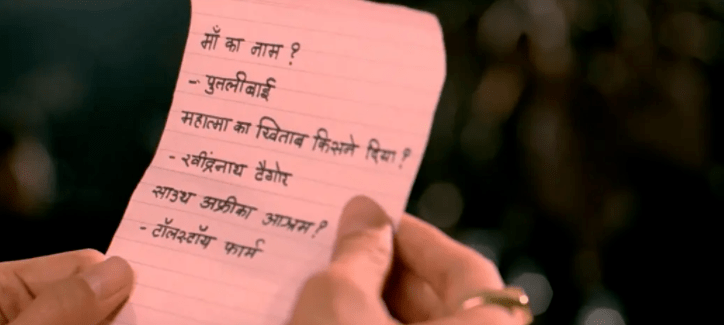 माँ का नाम ?
- पुतलीबाई
महात्मा का खिताब किसने दिया ?
- रवींद्रनाथ टैगोर
साउथ अफ्रीका आश्रम ?
- टॉलस्टॉय फार्म